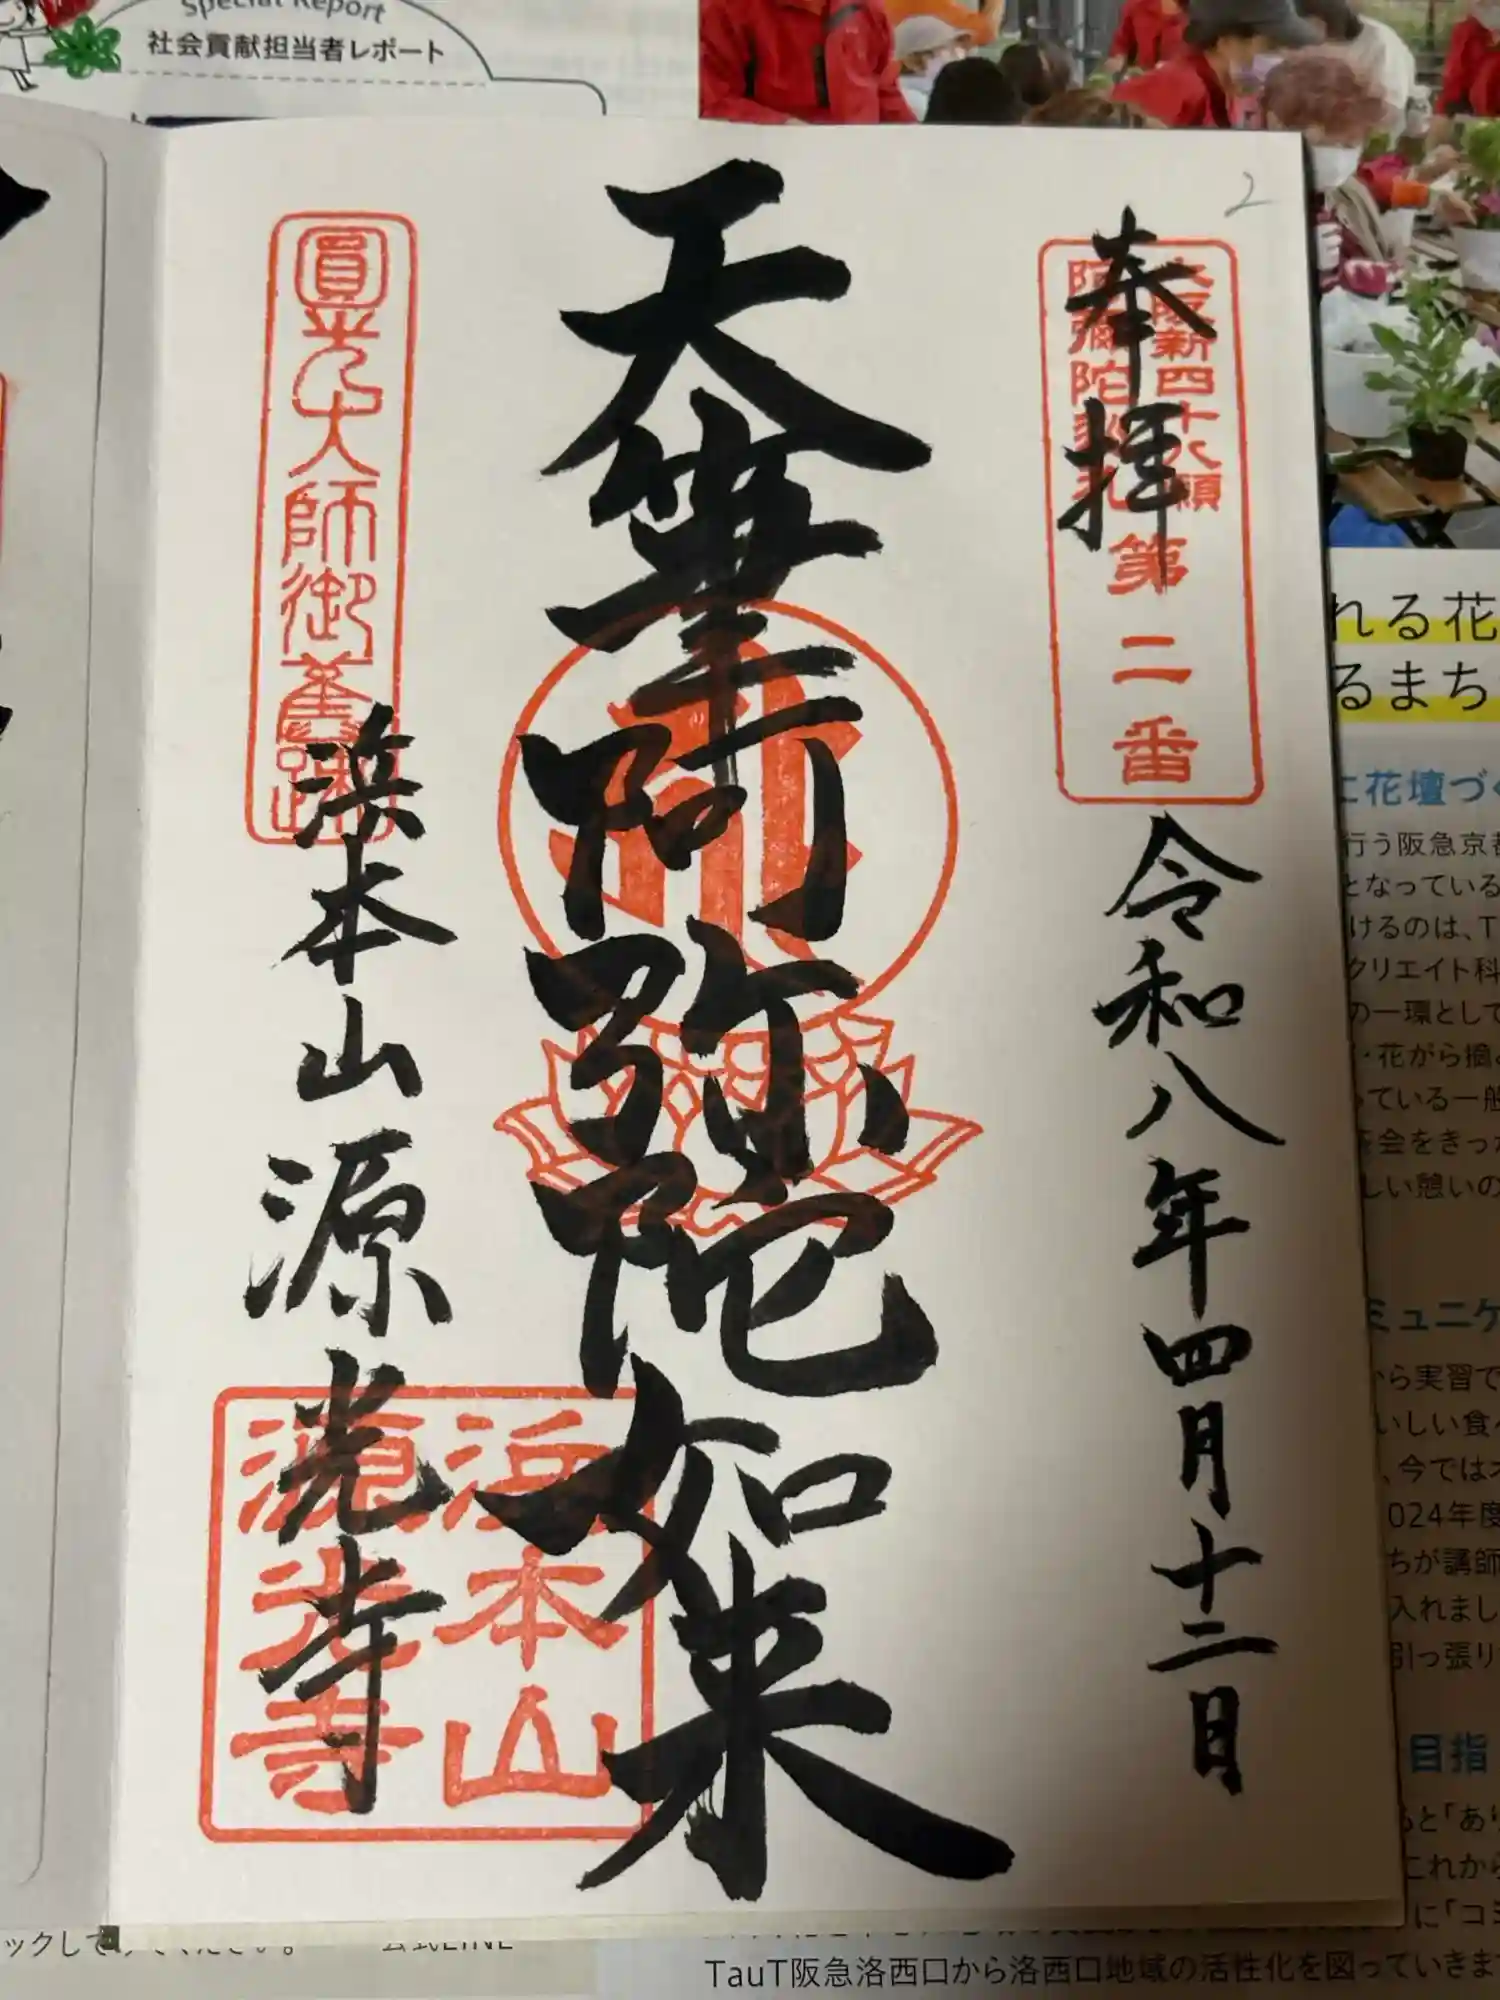 Special Report
社会貢献担当者レポート
2
奉拝
大阪新四十八願
阿彌陀巡礼
第二番
令和八年四月十二日
天筆阿弥陀如来
圓光大師御舊跡
浜本山源光寺
浜本山
源光寺
れる花
るまち
に花壇づく
行う阪急京都
となっている
けるのは、T
クリエイト科
の一環として
・花がら摘
っている一般
茶会をきっか
しい憩いの
ミュニケ
から実習で
いしい食べ
、今ではオ
024年度
ちが講師
入れまし
引っ張り
目指
ると「あり
これから
に「コミ
TauT阪急洛西口から洛西口地域の活性化を図っていきま